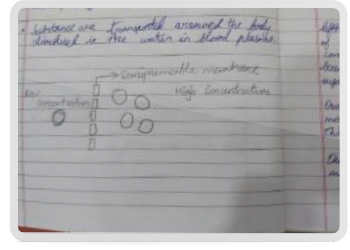 • Substance are transported arround the body
dissolved in the water in blood plasma.
Semipermeable membrane
High Concentration
Concentration